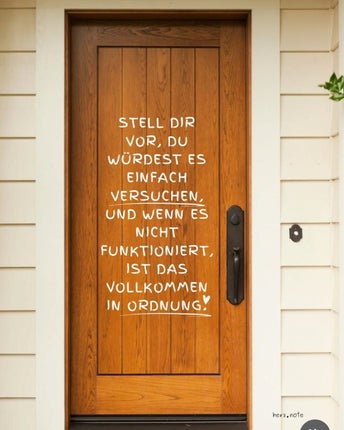 STELL DIR
VOR, DU
WÜRDEST ES
EINFACH
VERSUCHEN,
UND WENN ES
NICHT
FUNKTIONIERT,
IST DAS
VOLLKOMMEN
IN ORDNUNG.
hers.note